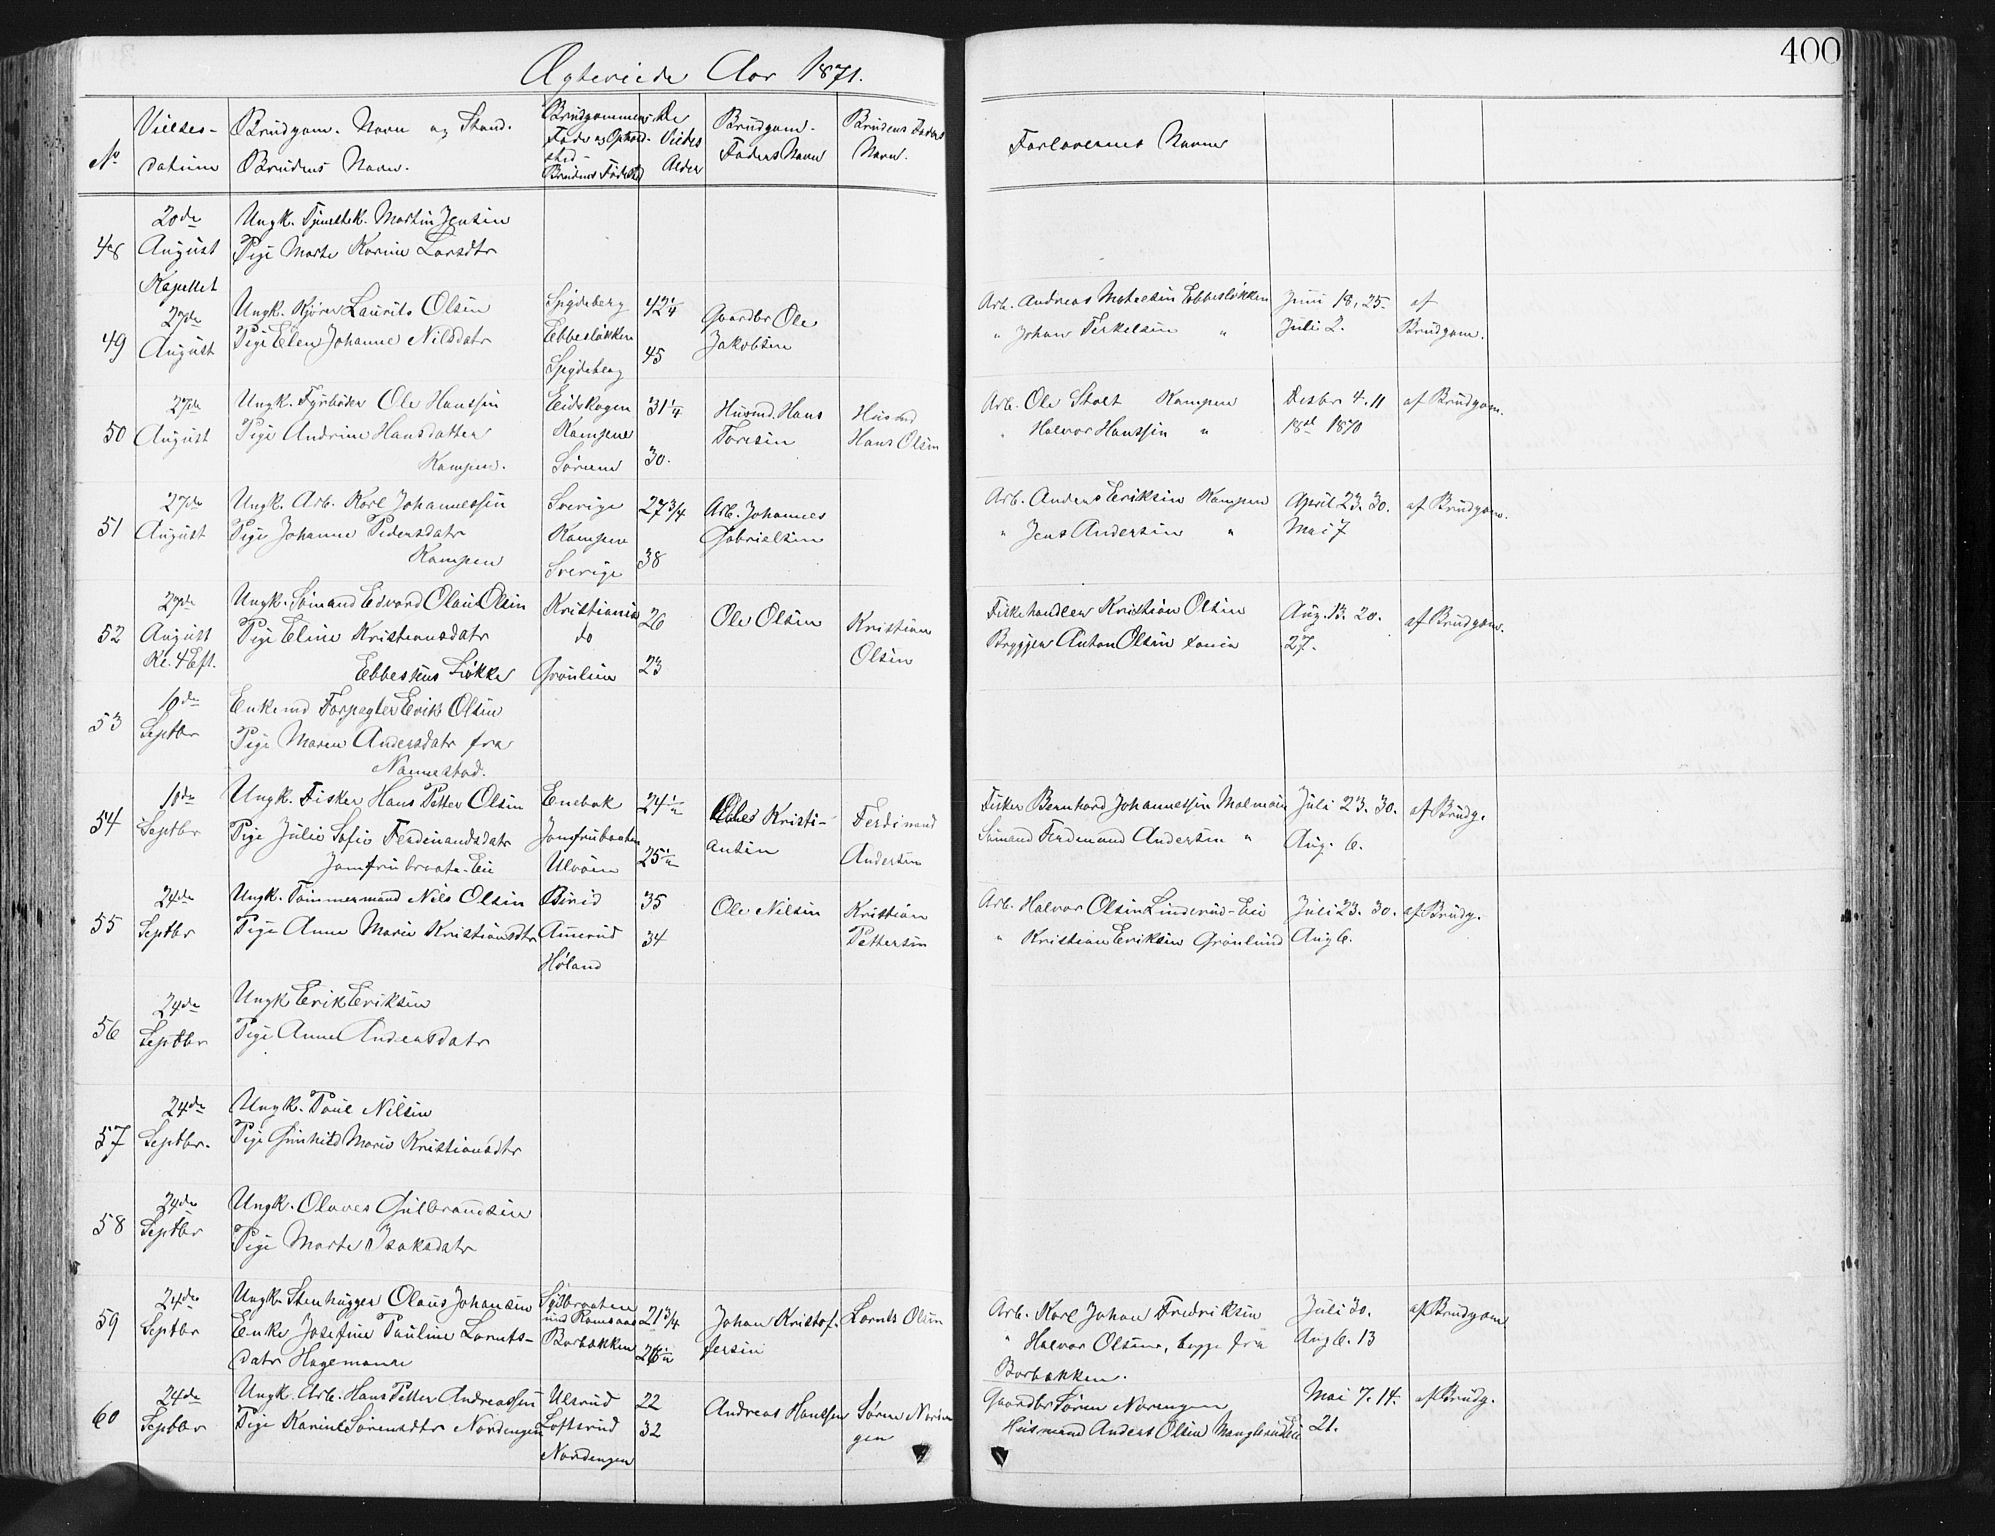 Ægteviede Aar 1871.
400
No
Vielses-
datum
Brudgom. Navn og Stand.
Brudens Navn.
Brudgommens
Føde og Ophold-
sted -
Brudens Fødested
De
Viedes
Alder
Brudgom.
Faders Navn
Brudens Faders
Navn.
Forlovernes Navne
48
20de
August
Kapellet
Ungk. Tjenestek. Martin Jensen
Pige Marte Karine Larsdtr
49
27de
August
Ungk. Kjører Laurits Olsen
Pige Elen Johanne Nilsdatr
Spydeberg
Ebbesløkken
Spydeberg
42 1/4
45
Gaardbr Ole
Jakobsen
Arb. Andreas Mathesen Ebbesløkken
" Johan Terkelsen "
Juni 18, 25.
Juli 2.
af
Brudgom.
50
27de
August
Ungk. Fyrbøder Ole Hanssen
Pige Andrine Hansdatter
Kampen.
Eidskogen
Kampen
Sørum
31 1/4
30.
Husmd. Hans
Toresen
Husmd
Hans Olsen
Arb. Ole Stolt Kampen
" Halvor Hanssen "
Desbr 4. 11
18de 1870
af Brudgom.
51
27de
August
Ungk. Arb. Karl Johannessen
Pige Johanne Pedersdatr
Kampen
Sverige
Kampen
Sverige
27 3/4
38
Arb. Johannes
Gabrielsen
Arb. Anders Eriksen Kampen
" Jens Andersen "
April 23. 30.
Mai 7
af Brudgom.
52
27de
August
Kl. 4 Eft.
Ungk. Sømand Edvard Olaus Olsen
Pige Eline Kristiansdatr
Ebbeshus Løkke
Kristiania
do
Grønlien
26
23
Ole Olsen
Kristian
Olsen
Fiskehandler Kristian Olsen
Brygger Anton Olsen
Aug. 13. 20.
27.
af Brudgom.
53
10de
Septbr
Enkemd Forpagter Erik Olsen
Pige Maren Andersdatr fra
Nannestad.
54
10de
Septbr
Ungk. Fisker Hans Petter Olsen
Pige Julie Sofie Ferdinandsdatr
Jomfrubraate-Eie
Enebak
Jomfrubraaten
Ulvøen
24 1/2
25 1/2
Oles Kristi-
ansen
Ferdinand
Andersen
Fisker Bernhard Johannessen Malmøen
Sømand Ferdinand Andersen "
Juli 23. 30.
Aug. 6.
af Brudg.
55
24de
Septbr
Ungk. Tømmermand Nils Olsen
Pige Anne Marie Kristiansdtr
Birid
Amerud
Høland
35
34
Ole Nilsen
Kristian
Pettersen
Arb. Halvor Olsen Linderud-Eie
" Kristian Eriksen Grønlund
Juli 23. 30.
Aug 6.
af Brudg.
56
24de
Septbr
Ungk Erik Eriksen
Pige Anne Andreasdatr
57
24de
Septbr.
Ungk. Paul Nilsen
Pige Gunhild Marie Kristiansdtr
58
24de
Septbr
Ungk. Olaves Gulbrandsen
Pige Marte Isaksdatr
59
24de
Septbr
Ungk. Stenhugger Olaus Johansen
Enke Josefine Pauline Lornts-
datr Hagemann
Sybraaten
und Romsaas
Borbakken
21 3/4
26 1/2
Johan Kristof-
fersen
Lornts Olsen
Arb. Karl Johan Fredriksen
" Halvor Olsen, begge fra
Borbakken.
Juli 30.
Aug 6. 13
af Brudgom
60
24de
Septbr
Ungk. Arb. Hans Petter Andreassen
Pige Karine Sørensdtr Nordengen
Ulsrud
Loftsrud
Nordengen
22
32
Andreas Hanssen
Søren Norden-
gen
Gaardbr Søren Norengen
Husmand Anders Olsen Manglerud Eie
Mai 7. 14.
21.
af Brudg.